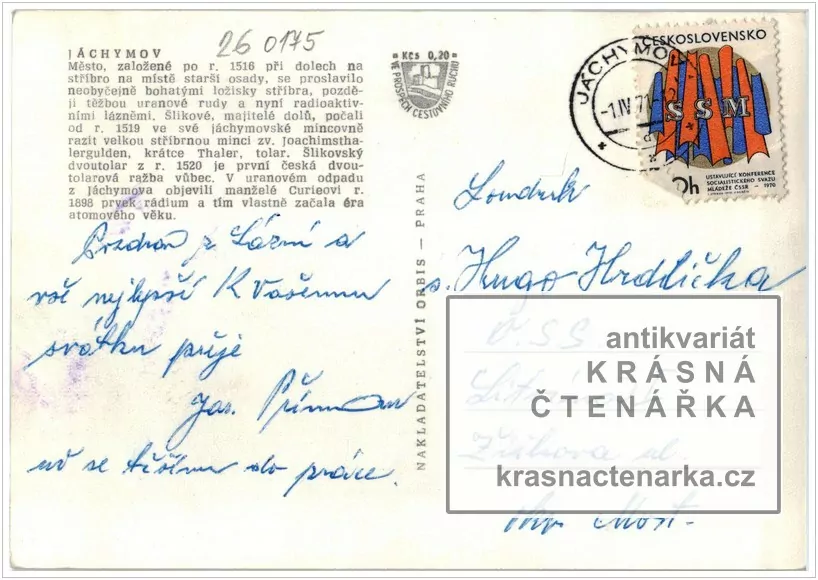 26 0175
JÁCHYMOV
Město, založené po r. 1516 při dolech na
stříbro na místě starší osady, se proslavilo
neobyčejně bohatými ložisky stříbra, pozdě-
ji těžbou uranové rudy a nyní radioaktiv-
ními lázněmi. Šlikové, majitelé dolů, počali
od r. 1519 ve své jáchymovské mincovně
razit velkou stříbrnou minci zv. Joachimstha-
lergulden, krátce Thaler, tolar. Šlikovský
dvoutolar z r. 1520 je první česká dvou-
tolarová ražba vůbec. V uranovém odpadu
z Jáchymova objevili manželé Curieovi r.
1898 prvek rádium a tím vlastně začala éra
atomového věku.
Kčs 0,20
VE PROSPĚCH CESTOVNÍHO RUCHU
JÁCHYMOV
-1.IV 71
ČESKOSLOVENSKO
SSM
0h
USTAVUJÍCÍ KONFERENCE
SOCIALISTICKÉHO SVAZU
MLÁDEŽE ČSSR - 1970
Pozdrav z Lázní a
vše nejlepší K Vašemu
svátku přeje
Jar.
už se těším do práce.
NAKLADATELSTVÍ ORBIS — PRAHA
Soudruh
s. Hugo Hrdlička
Č.S.S.
Žižkova ul.
okr. Most.
antikvariát
KRÁSNÁ
ČTENÁŘKA
krasnactenarka.cz